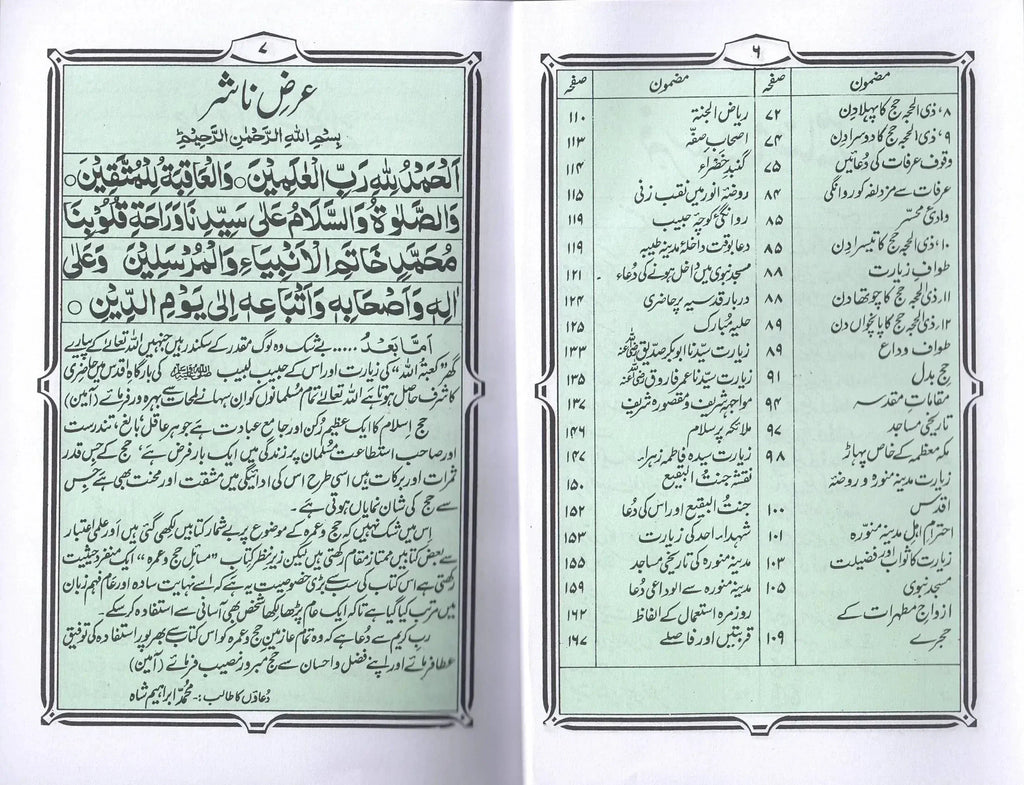 ۶
مضمون صفحہ
۸؍ ذی الحجہ حج کا پہلا دن ۷۲
۹؍ ذی الحجہ حج کا دوسرا دن ۷۴
وقوف عرفات کی دعائیں ۷۵
عرفات سے مزدلفہ کو روانگی ۸۴
وادئ محسر ۸۵
۱۰؍ ذی الحجہ حج کا تیسرا دن ۸۵
طواف زیارت ۸۸
۱۱؍ ذی الحجہ حج کا چوتھا دن ۸۸
۱۲؍ ذی الحجہ حج کا پانچواں دن ۸۹
طواف وداع ۸۹
حج بدل ۹۱
مقامات مقدسہ ۹۴
تاریخی مساجد ۹۷
مکہ معظمہ کے خاص پہاڑ ۹۸
زیارت مدینہ منورہ و روضۂ
اقدس ۱۰۰
احترام اہل مدینہ منورہ ۱۰۱
زیارت کا ثواب اور فضیلت ۱۰۳
مسجد نبوی ۱۰۵
ازواج مطہرات کے
حجرے ۱۰۹
مضمون صفحہ
ریاض الجنۃ ۱۱۰
اصحاب صفہ ۱۱۳
گنبد خضراء ۱۱۴
روضۂ انور میں نقب زنی ۱۱۵
روانگئ کوچۂ حبیب ۱۱۹
دعا بوقت داخلۂ مدینہ طیبہ ۱۱۹
مسجد نبوی میں داخل ہونے کی دعاء ۱۲۱
دربار قدسیہ پر حاضری ۱۲۴
حلیہ مبارک ۱۲۵
زیارت سیدنا ابوبکر صدیق رضی اللہ عنہ ۱۳۳
زیارت سیدنا عمر فاروق رضی اللہ عنہ ۱۳۵
مواجہ شریف و مقصورہ شریف ۱۳۷
ملائکہ پر سلام ۱۴۶
زیارت سیدہ فاطمہ زہراء ۱۴۷
نقشہ جنت البقیع ۱۵۰
جنت البقیع اور اس کی دعا ۱۵۲
شہداء احد کی زیارت ۱۵۳
مدینہ منورہ کی تاریخی مساجد ۱۵۵
مدینہ منورہ سے الوداعی دعا ۱۵۹
روزمرہ استعمال کے الفاظ ۱۶۲
قربتیں اور فاصلے ۱۶۷
۷
عرض ناشر
بِسْمِ اللهِ الرَّحْمٰنِ الرَّحِیْمِ
اَلْحَمْدُ لِلّٰهِ رَبِّ الْعٰلَمِیْنَ ○ وَالْعَاقِبَةُ لِلْمُتَّقِیْنَ ○
وَالصَّلٰوةُ وَالسَّلَامُ عَلٰی سَیِّدِنَا وَرَاحَةِ قُلُوْبِنَا
مُحَمَّدٍ خَاتَمِ الْاَنْبِیَاءِ وَالْمُرْسَلِیْنَ وَعَلٰی
اٰلِهٖ وَاَصْحَابِهٖ وَاَتْبَاعِهٖ اِلٰی یَوْمِ الدِّیْنِ ○
اَمَّا بَعْدُ ..... بے شک وہ لوگ مقدر کے سکندر ہیں جنہیں اللہ تعالیٰ کے پیارے
گھر ”کعبۃ اللہ“ کی زیارت اور اس کے حبیب لبیب ﷺ کی بارگاہ اقدس میں حاضری
کا شرف حاصل ہوتا ہے اللہ تعالیٰ تمام مسلمانوں کو ان سہانے لمحات سے بہرہ ور فرمائے (آمین)
حج اسلام کا ایک عظیم رکن اور جامع عبادت ہے جو ہر عاقل، بالغ، تندرست
اور صاحب استطاعت مسلمان پر زندگی میں ایک بار فرض ہے، حج کے جس قدر
ثمرات اور برکات ہیں اسی طرح اس کی ادائیگی میں مشقت اور محنت بھی ہے جس
سے حج کی شان نمایاں ہوتی ہے۔
اس میں شک نہیں کہ حج و عمرہ کے موضوع پر بے شمار کتابیں لکھی گئی ہیں اور علمی اعتبار
سے بعض کتابیں ممتاز مقام رکھتی ہیں لیکن زیر نظر کتاب ”مسائل حج و عمرہ“ ایک منفرد حیثیت
رکھتی ہے اس کتاب کی سب سے بڑی خصوصیت یہ ہے کہ اسے نہایت سادہ اور عام فہم زبان
میں مرتب کیا گیا ہے تاکہ ایک عام پڑھا لکھا شخص بھی آسانی سے استفادہ کر سکے۔
رب کریم سے دعا ہے کہ وہ تمام عازمین حج و عمرہ کو اس کتاب سے بھرپور استفادہ کی توفیق
عطا فرمائے اور اپنے فضل و احسان سے حج مبرور نصیب فرمائے (آمین)
دعاؤں کا طالب :- محمد ابراہیم شاہ